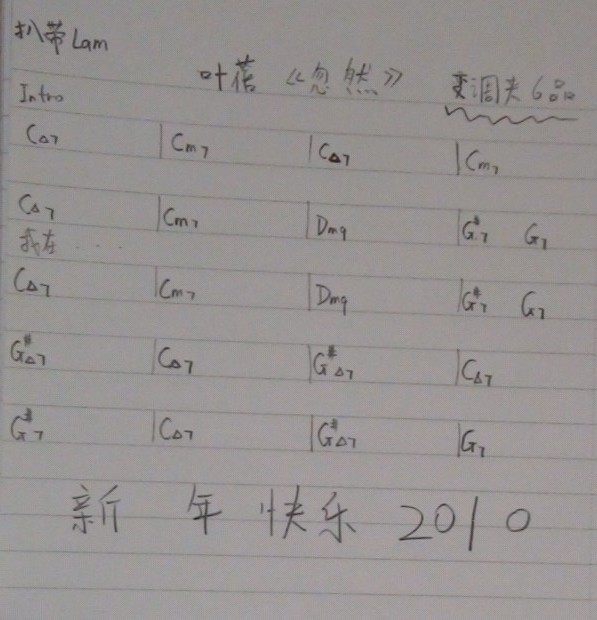 扒带Lam
叶蓓 《忽然》 变调夹6品
Intro
C△7 |Cm7 |C△7 |Cm7
C△7 |Cm7 |Dm9 |G#7 G7
我在...
C△7 |Cm7 |Dm9 |G#7 G7
G#△7 |C△7 |G#△7 |C△7
G#7 |C△7 |G#△7 |G7
新年快乐 2010